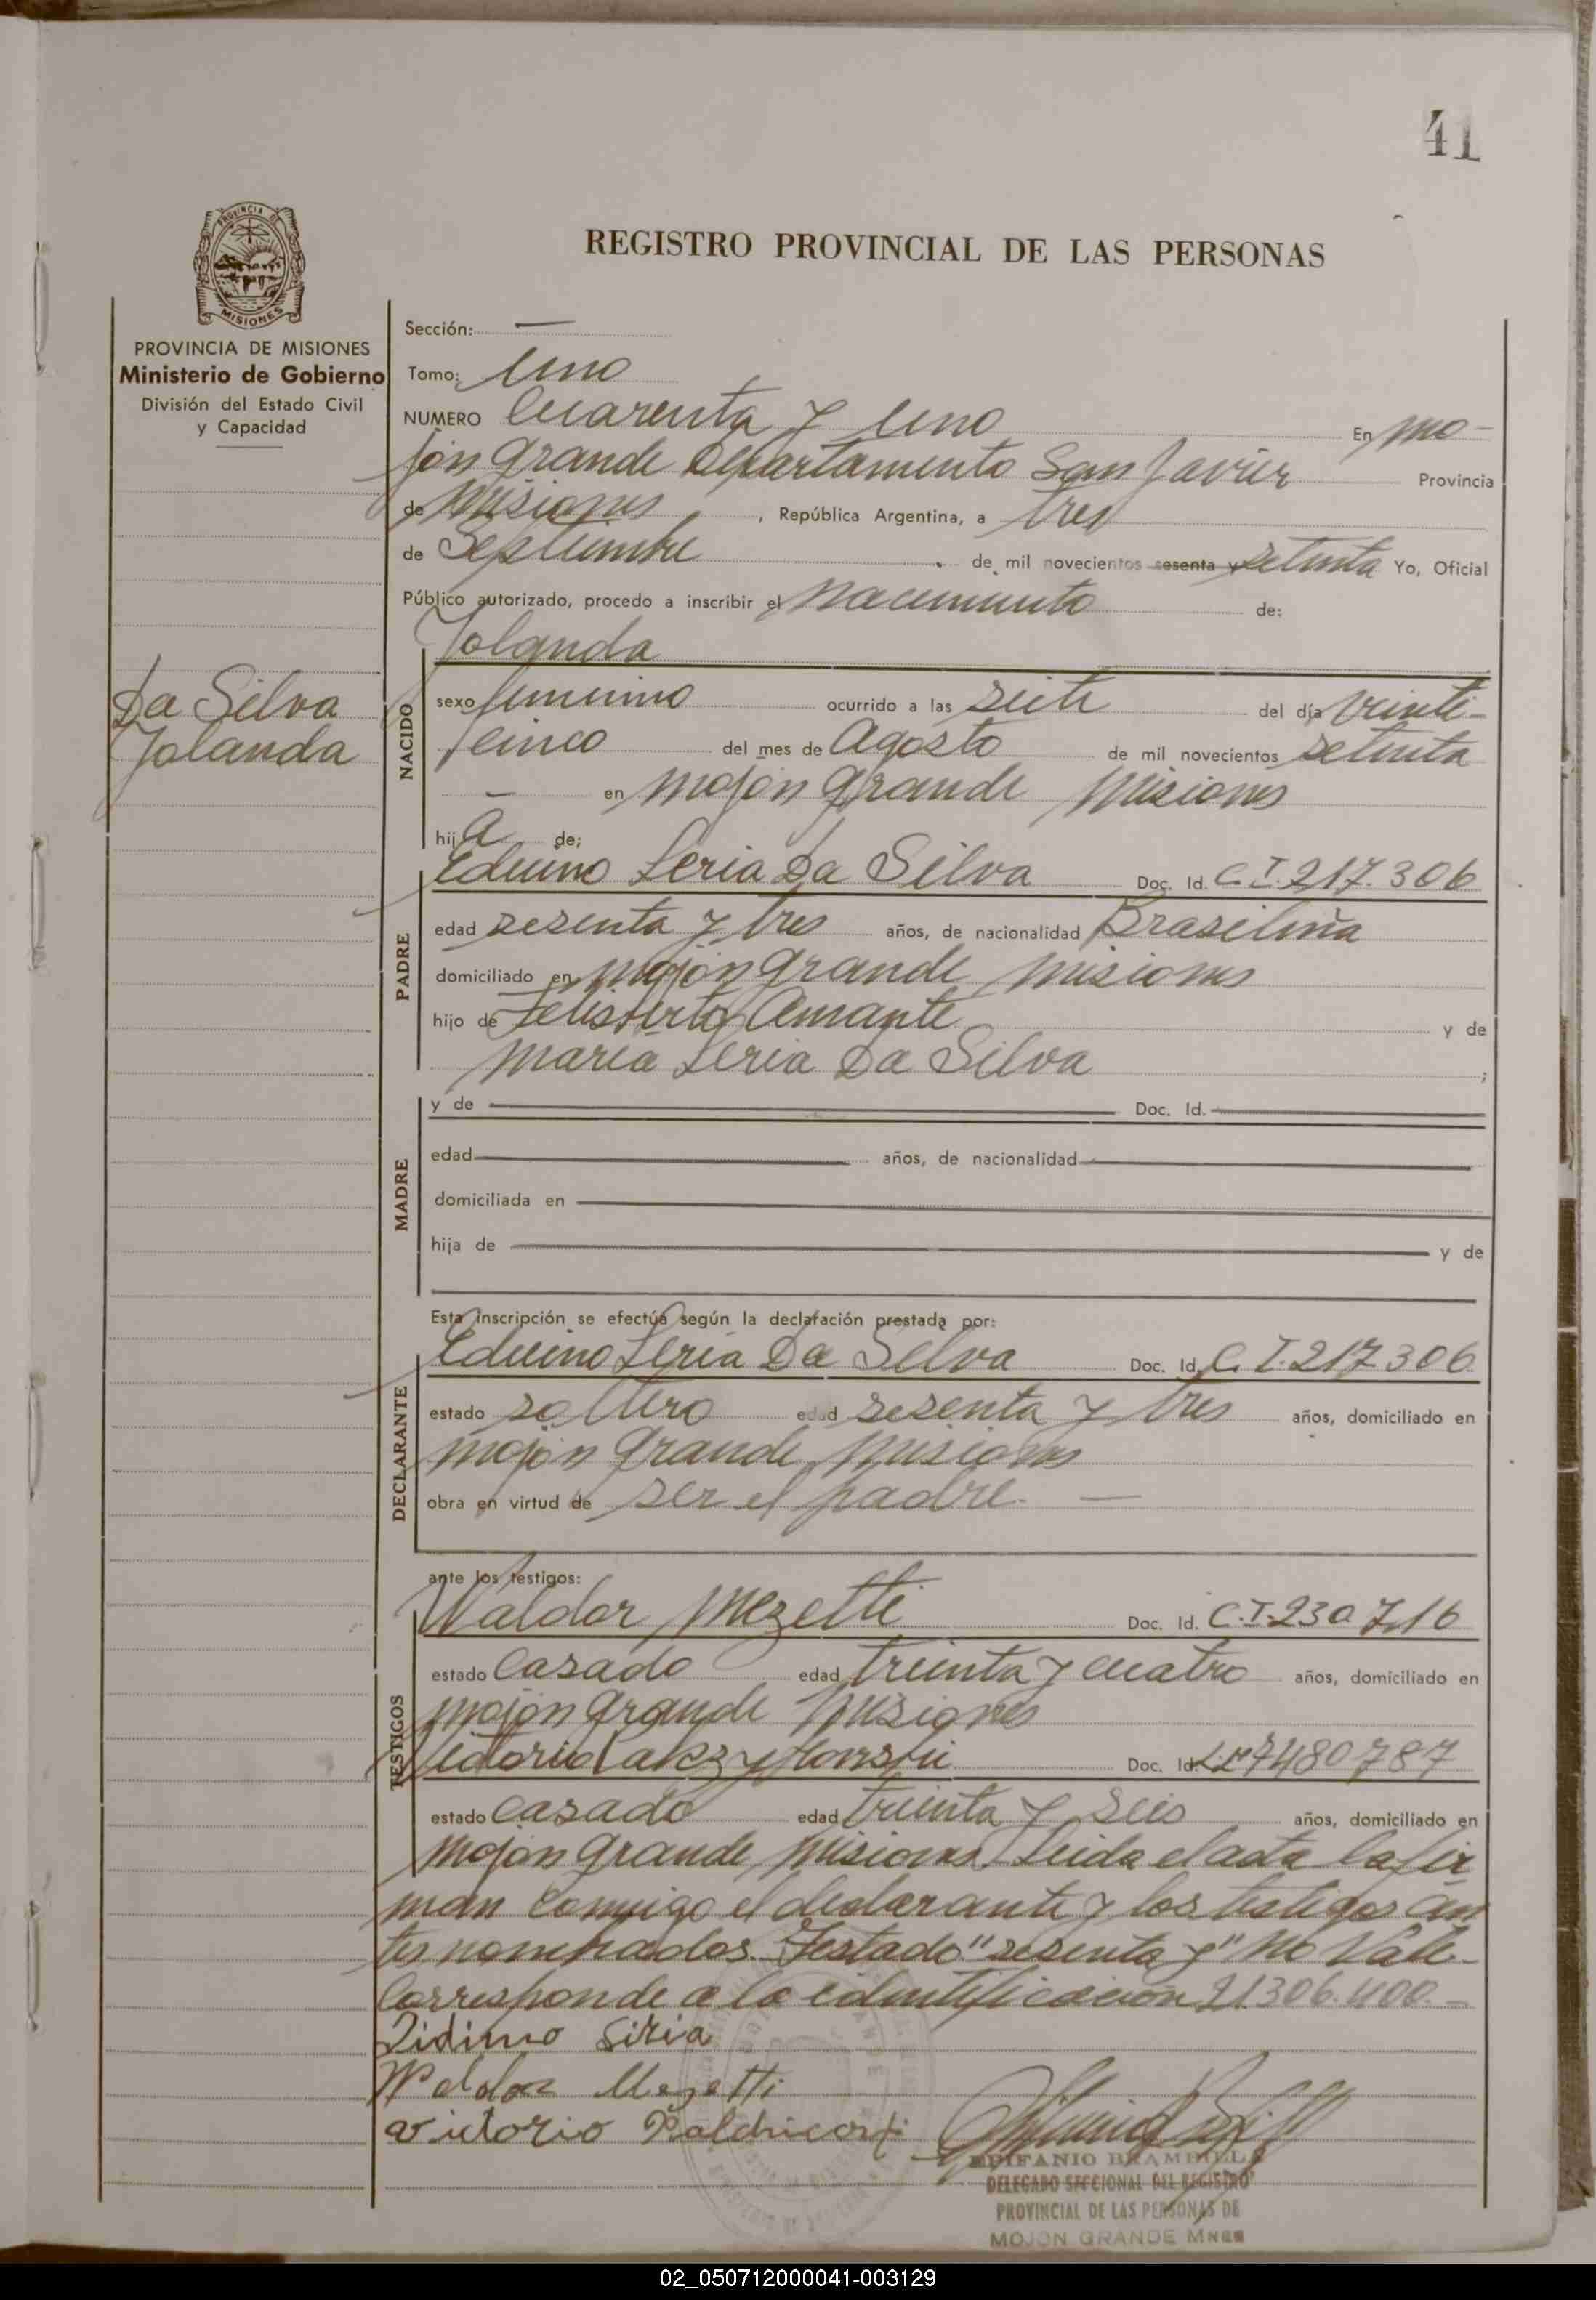 41
REGISTRO PROVINCIAL DE LAS PERSONAS
PROVINCIA DE MISIONES
MISIONES
PROVINCIA DE MISIONES
Ministerio de Gobierno
División del Estado Civil
y Capacidad
Da Silva
Jolanda
Sección: —
Tomo: Uno
NUMERO Cuarenta y Uno En Mo-
jón Grande Departamento San Javier Provincia
de Misiones, República Argentina, a tres
de Septiembre de mil novecientos sesenta y setenta Yo, Oficial
Público autorizado, procedo a inscribir el nacimiento de:
Jolanda
NACIDO
sexo femenino ocurrido a las siete del día veinti-
cinco del mes de Agosto de mil novecientos setenta
— en Mojón Grande Misiones
hija de;
Seria Da Silva Doc. Id. C.I. 217.306
PADRE
edad sesenta y tres años, de nacionalidad Brasileña
domiciliado en Mojón Grande Misiones
hijo de Amante y de
María Seria Da Silva ;
MADRE
y de — Doc. Id. —
edad — años, de nacionalidad —
domiciliada en —
hija de — y de
Esta inscripción se efectúa según la declaración prestada por:
DECLARANTE
Seria Da Silva Doc. Id. C.I. 217306
estado soltero edad sesenta y tres años, domiciliado en
Mojón Grande Misiones
obra en virtud de ser el padre. —
ante los testigos:
TESTIGOS
Waldor Mezetti Doc. Id. C.I. 230716
estado Casado edad treinta y cuatro años, domiciliado en
Mojón Grande Misiones
Victorio Doc. Id. L.M 7480787
estado Casado edad treinta y seis años, domiciliado en
Mojón Grande, Misiones. Leida el acta la fir
man conmigo el declarante y los testigos an
tes nombrados. Testado "sesenta y" No Vale.
Corresponde a la identificación 21.306.400.—
Siria
Waldor Mezetti
Victorio
EPIFANIO BRAMBILLA
DELEGADO SECCIONAL DEL REGISTRO
PROVINCIAL DE LAS PERSONAS DE
MOJON GRANDE Mnes
02_050712000041-003129